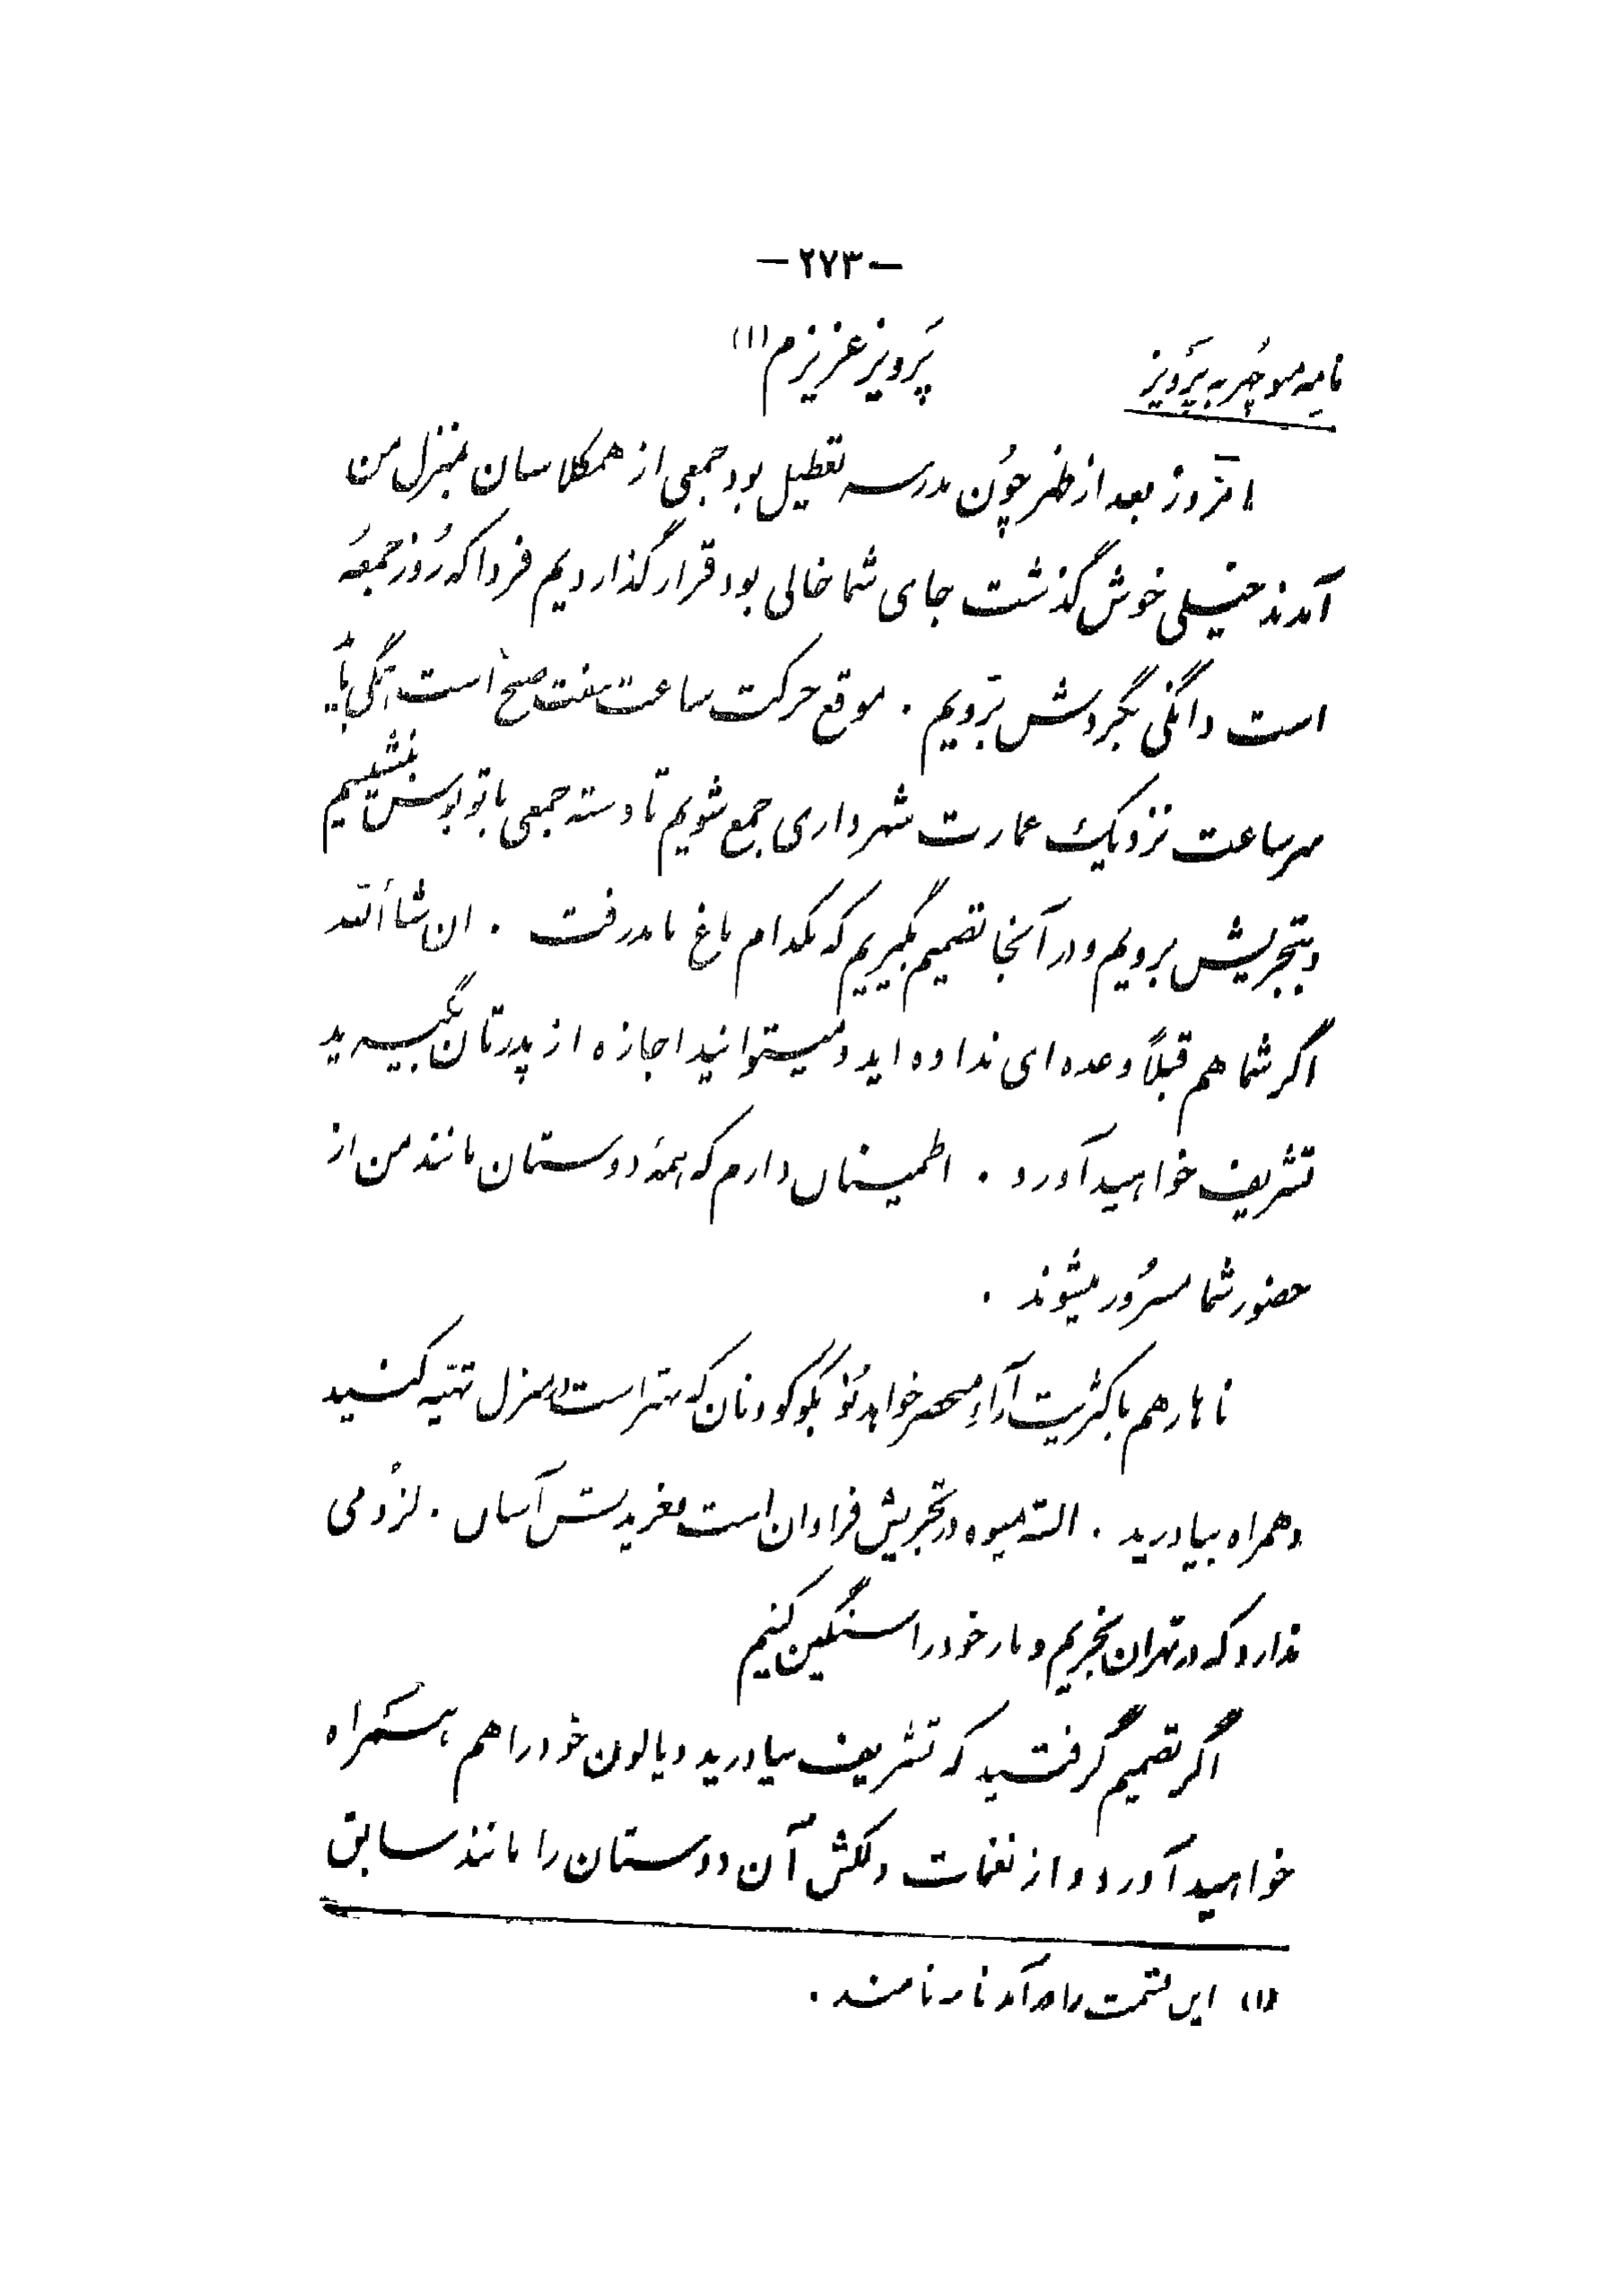 -۲۷۳-
نامه منوچهر به پرویز
پرویز عزیزم (۱)
امروز بعد از ظهر چون مدرسه تعطیل بود جمعی از همکلاسان بمنزل من
آمدند خیلی خوش گذشت جای شما خالی بود قرار گذاردیم فردا که روز جمعه
است دانگی بگردش برویم . موقع حرکت ساعت هفت صبح است همگی باید
سر ساعت نزدیک عمارت شهرداری جمع شویم تا دسته جمعی باتوبوس بنشینیم
و بتجریش برویم و در آنجا تصمیم بگیریم که بکدام باغ باید رفت . ان شاءالله
اگر شما هم قبلاً وعده ای نداده اید و میتوانید اجازه از پدرتان بگیرید
تشریف خواهید آورد . اطمینان دارم که همهٔ دوستان مانند من از
حضور شما مسرور میشوند .
ناهار هم باکثریت آراء منحصر خواهد بود بکوکو و نان که بهتر است در منزل تهیه کنید
و همراه بیاورید . البته میوه در تجریش فراوان است و خریدنش آسان . لزومی
ندارد که در تهران بخریم و بار خود را سنگین کنیم
اگر تصمیم گرفتید که تشریف بیاورید ویالون خود را هم همراه
خواهید آورد و از نغمات دلکش آن دوستان را مانند سابق
(۱) این قسمت را درآمد نامه نامند .